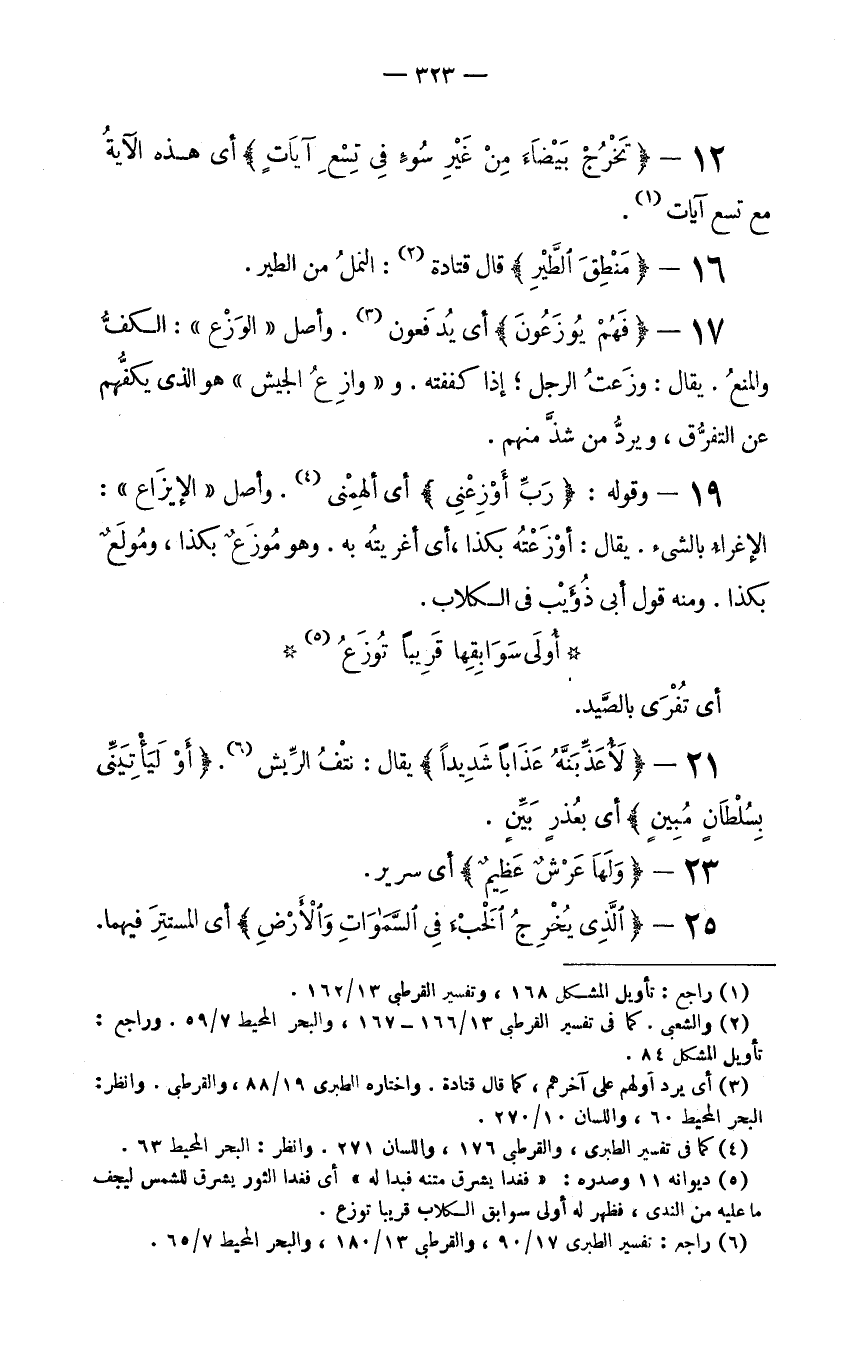 — ٣٢٣ —
١٢ — ﴿ تَخْرُجْ بَيْضَاءَ مِنْ غَيْرِ سُوءٍ فِي تِسْعِ آيَاتٍ ﴾ أى هـذه الآيةُ
مع تسع آيات (١) .
١٦ — ﴿ مَنْطِقَ ٱلطَّيْرِ ﴾ قال قتادة (٢) : النملُ من الطير .
١٧ — ﴿ فَهُمْ يُوزَعُونَ ﴾ أى يُدفَعون (٣) . وأصل « الوَزْع » : الـكفُّ
والمنعُ . يقال : وزَعتُ الرجل ؛ إذا كففته . و « وازِعُ الجيش » هو الذى يكفُّهم
عن التفرُّق ، ويردُّ من شذَّ منهم .
١٩ — وقوله : ﴿ رَبِّ أَوْزِعْنِي ﴾ أى ألهِمْنى (٤) . وأصل « الإيزَاع » :
الإغراء بالشىء . يقال : أوْزَعْتُه بكذا ،أى أغريتُه به . وهو مُوزَعٌ بكذا ، ومُولَعٌ
بكذا . ومنه قول أبى ذُؤَيْب فى الـكلاب .
* أُولَى سَوَابِقِها قَرِيباً تُوزَعُ (٥) *
أى تُغْرَى بالصَّيد.
٢١ — ﴿ لَأُعَذِّبَنَّهُ عَذَاباً شَدِيداً ﴾ يقال : نتْفُ الرِّيش (٦). ﴿ أَوْ لَيَأْتِيَنِّى
بِسُلْطَانٍ مُبِينٍ ﴾ أى بعُذرٍ بَيِّنٍ .
٢٣ — ﴿ وَلَهَا عَرْشٌ عَظِيمٌ ﴾ أى سرير .
٢٥ — ﴿ ٱلَّذِى يُخْرِجُ ٱلْخَبْءَ فِي ٱلسَّمَٰوَاتِ وَٱلْأَرْضِ ﴾ أى المستتِرَ فيهما.
(١) راجع : تأويل المشـكل ١٦٨ ، وتفسير القرطبى ١٦٢/١٣ .
(٢) والشعبى . كما فى تفسير القرطبى ١٦٦/١٣ – ١٦٧ ، والبحر المحيط ٥٩/٧ . وراجع :
تأويل المشكل ٨٤ .
(٣) أى يرد أولهم على آخرهم ، كما قال قتادة . واختاره الطبرى ٨٨/١٩ ، والقرطبى . وانظر:
البحر المحيط ٦٠ ، واللسان ٢٧٠/١٠ .
(٤) كما فى تفسير الطبرى ، والقرطبى ١٧٦ ، واللسان ٢٧١ . وانظر : البحر المحيط ٦٣ .
(٥) ديوانه ١١ وصدره : « فغدا يشرق متنه فبدا له » أى فغدا الثور يشرق للشمس ليجف
ما عليه من الندى ، فظهر له أولى سوابق الـكلاب قريبا توزع .
(٦) راجع : تفسير الطبرى ٩٠/١٧ ، والقرطبى ١٨٠/١٣ ، والبحر المحيط ٦٥/٧ .